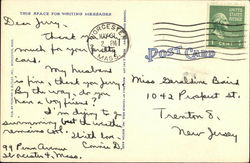 THIS SPACE FOR WRITING MESSAGES
Dear Jerry,
Thank you so
much for your pretty
card.
My husband
is fine, thank you Jerry.
By the way, do you
have a boy friend?
I'm dying to go
swimming but the water
remains cold.
With love
Connie D.
99 Penn Avenue
Worcester 4, Mass.
WORCESTER
MASS.
POST CARD
Miss Geraldine Baird
1042 Prospect St.
Trenton 8,
New Jersey
1 CENT 1